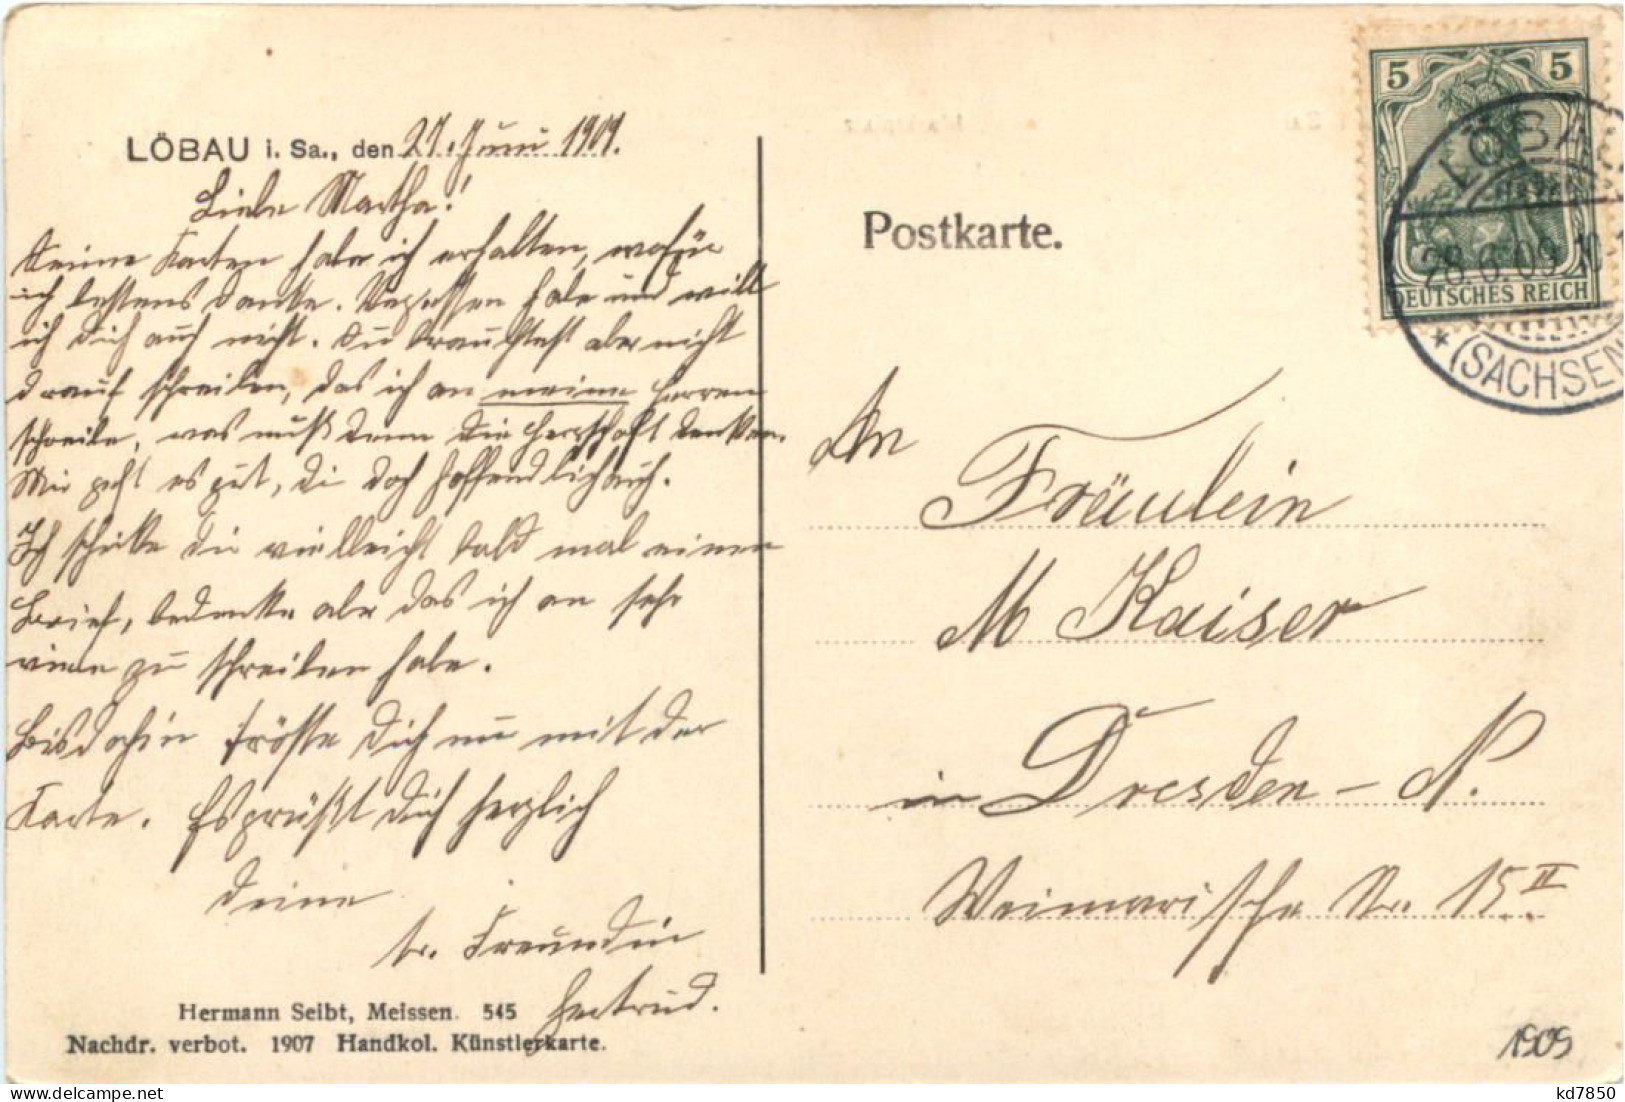 LÖBAU i. Sa., den 27. Juni 1909.
Liebe Martha!
Deine Karten habe ich erhalten, wofür
ich bestens danke. Vergessen habe und will
ich dich auch nicht. Du brauchtest aber nicht
drauf schreiben, das ich an meine Herren
schreibe, was muß denn die Herrschaft denken.
Mir geht es gut, Di doch hoffendlich auch.
Ich schicke dir vielleicht bald mal einen
Brief, bedenke aber das ich an sehr
viele zu schreiben habe.
Bis dahin tröste Dich nu mit der
Karte. Es grüßt dich herzlich
deine
tr. Freundin
Gertrud.
Hermann Seibt, Meissen. 545
Nachdr. verbot. 1907 Handkol. Künstlerkarte.
Postkarte.
5 5
DEUTSCHES REICH
LÖBA
28.6.09.10
* (SACHSEN
An
Fräulein
M Kaiser
in Dresden - N.
Weimarische Str. 15 II
1909
kd7850